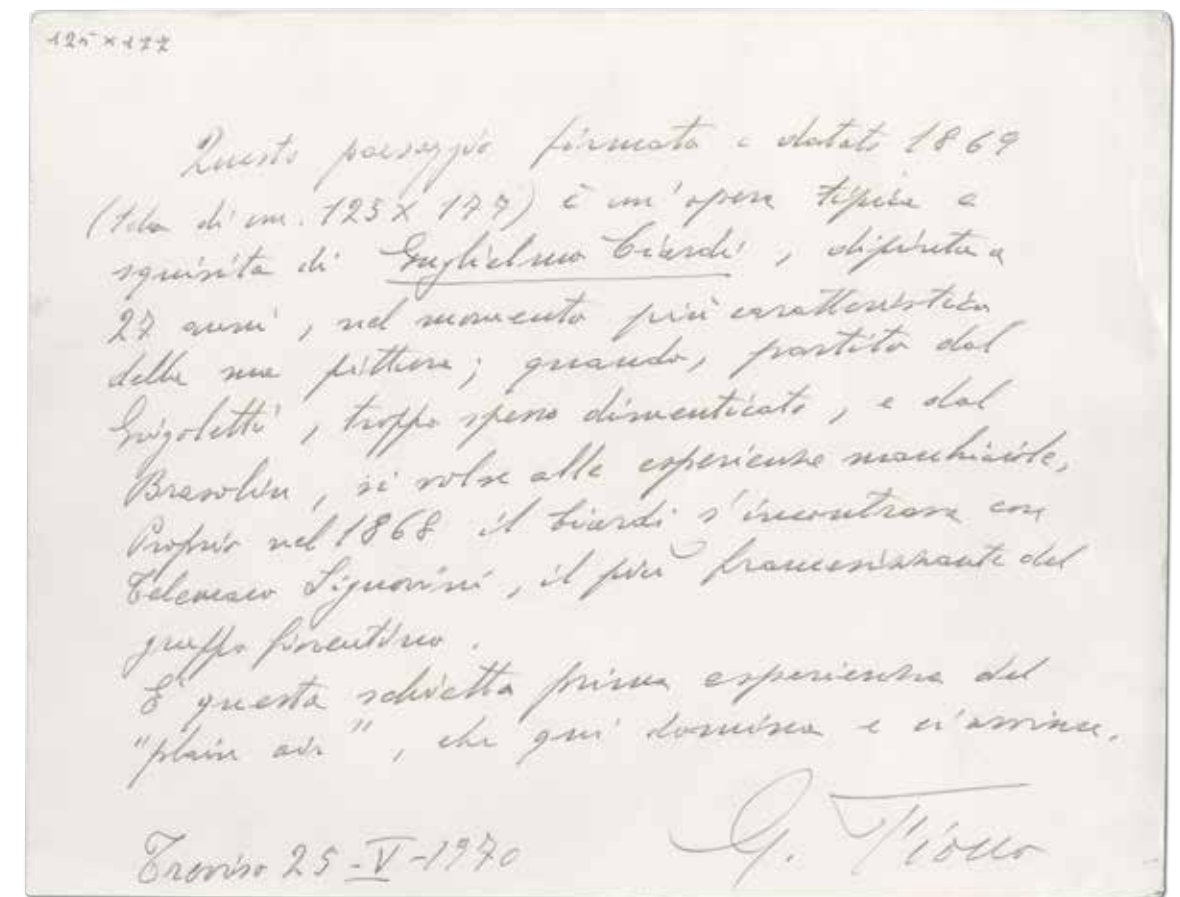 125 x 177
Questo paesaggio firmato e datato 1869
(tela di cm. 125 X 177) è un'opera tipica e
squisita di Guglielmo Ciardi, dipinta a
27 anni, nel momento più caratteristico
della sua pittura; quando, partito dal
Grigoletti, troppo spesso dimenticato, e dal
Bresolin, si volse alle esperienze macchiaiole.
Proprio nel 1868 il Ciardi s'incontrava con
Telemaco Signorini, il più francesizzante del
gruppo fiorentino.
È questa schietta prima esperienza del
"plain air", che qui domina e ci avvince.
Treviso 25-V-1970
G. Fiocco